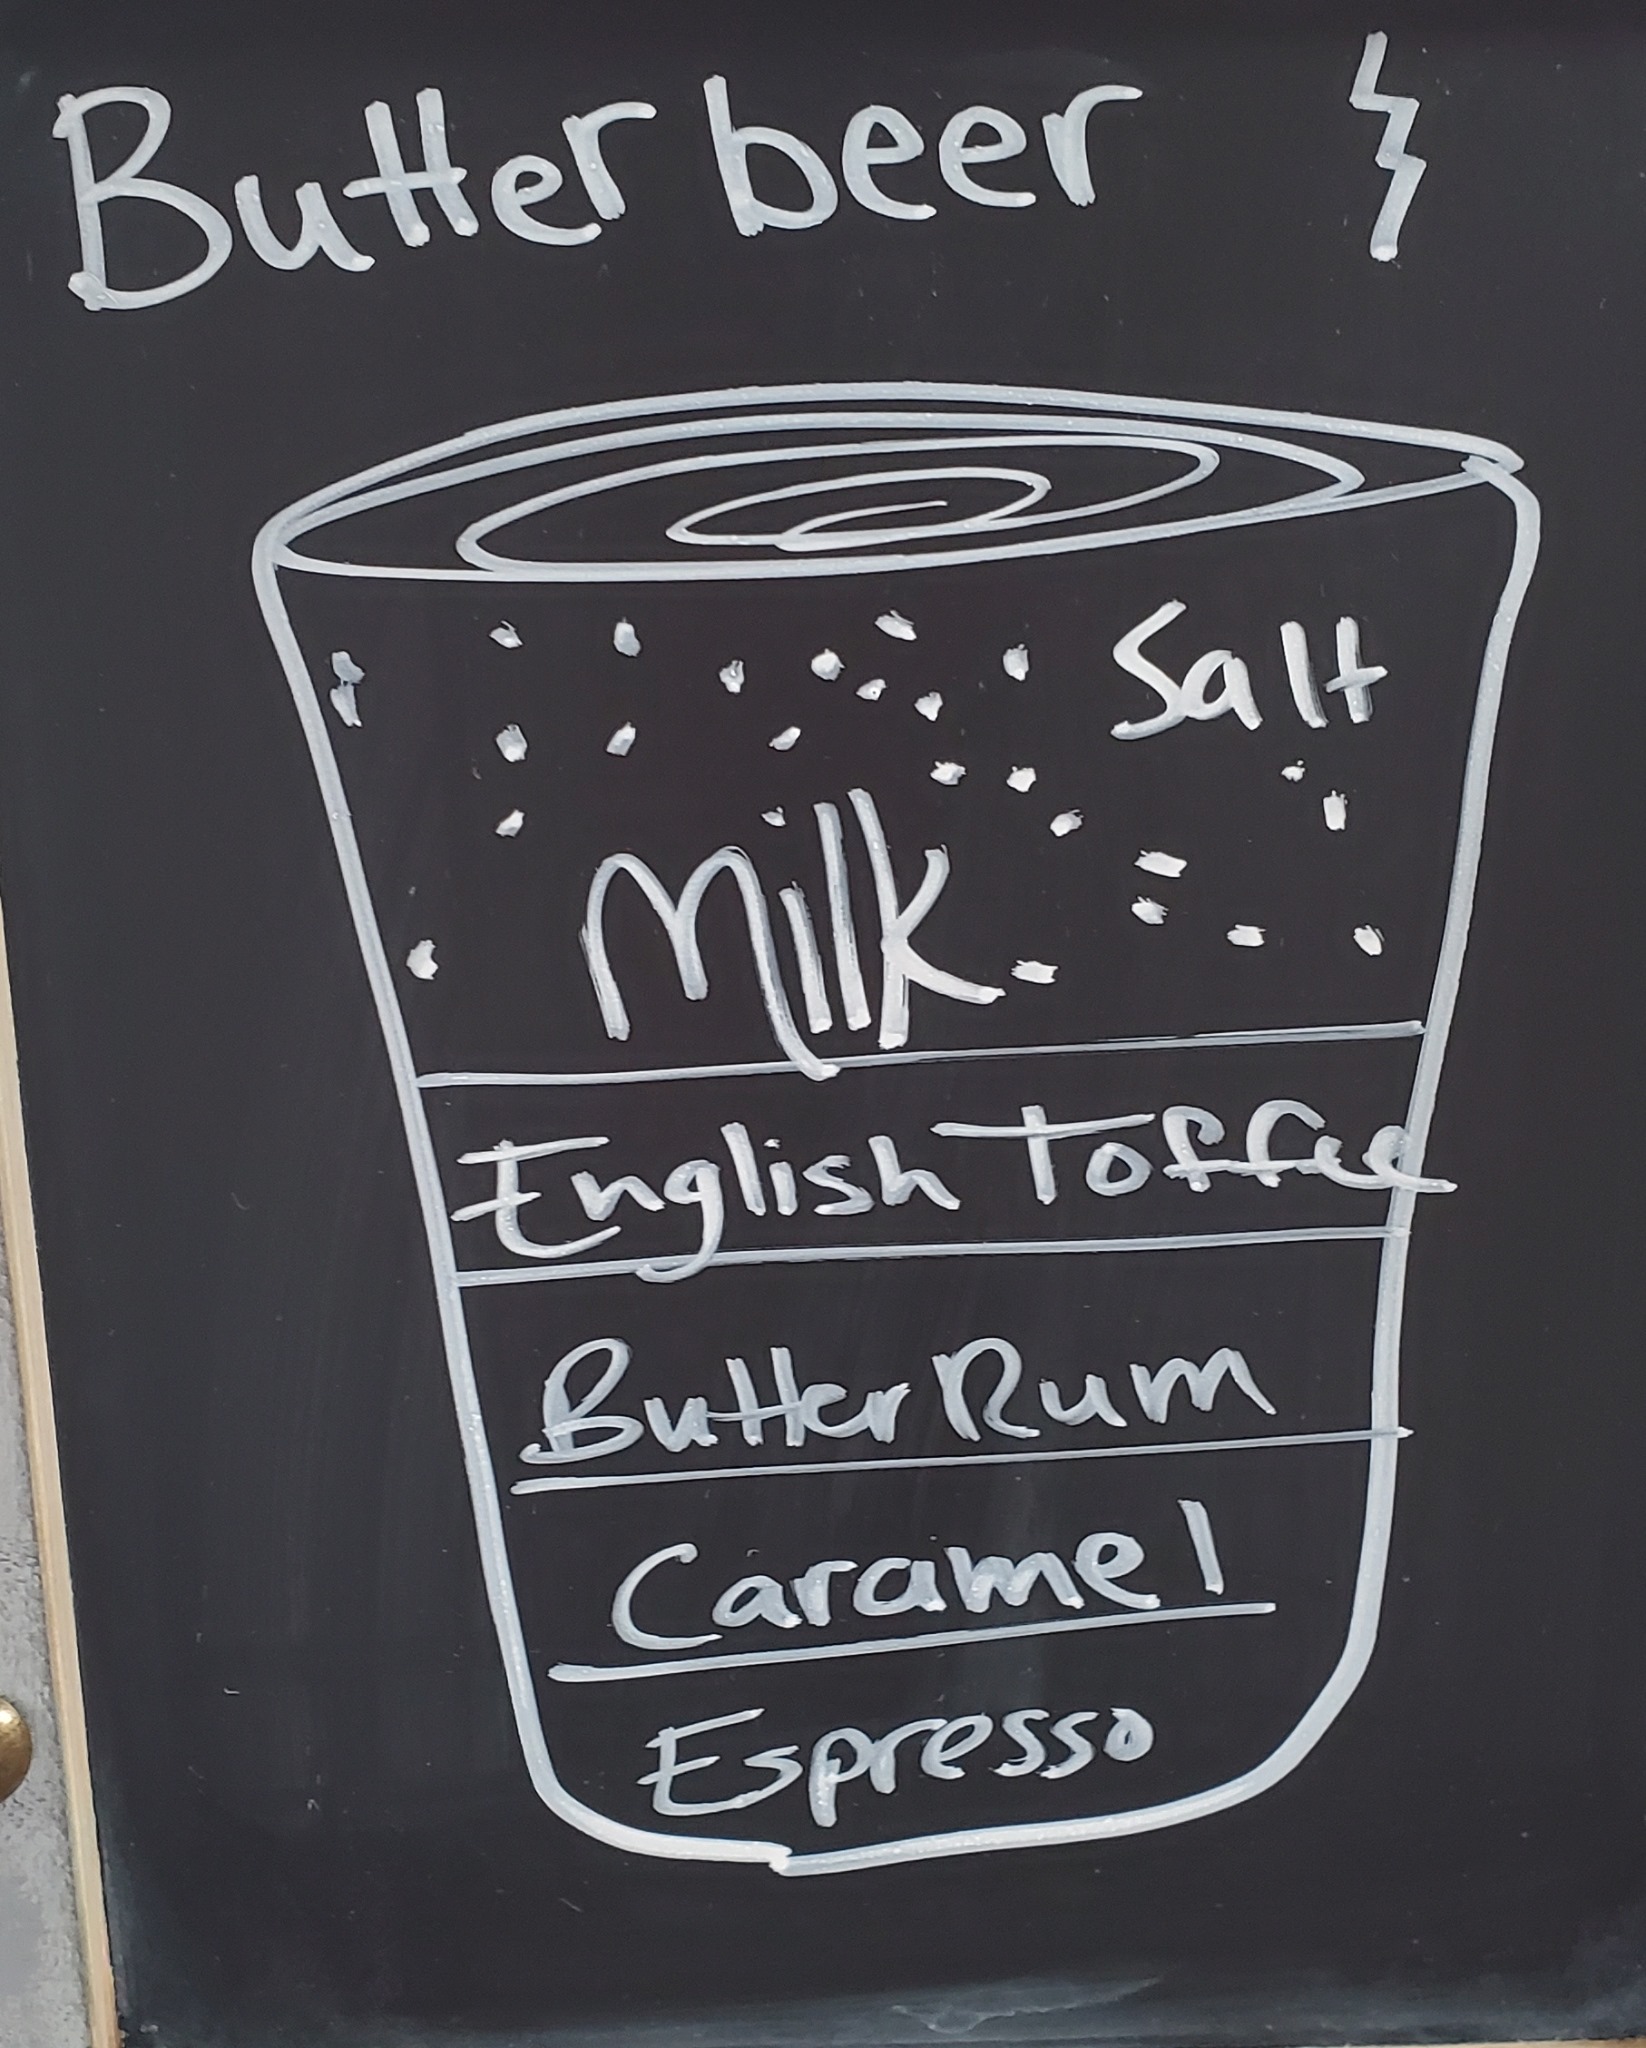 Butterbeer
Salt
Milk
English Toffee
Butter Rum
Caramel
Espresso